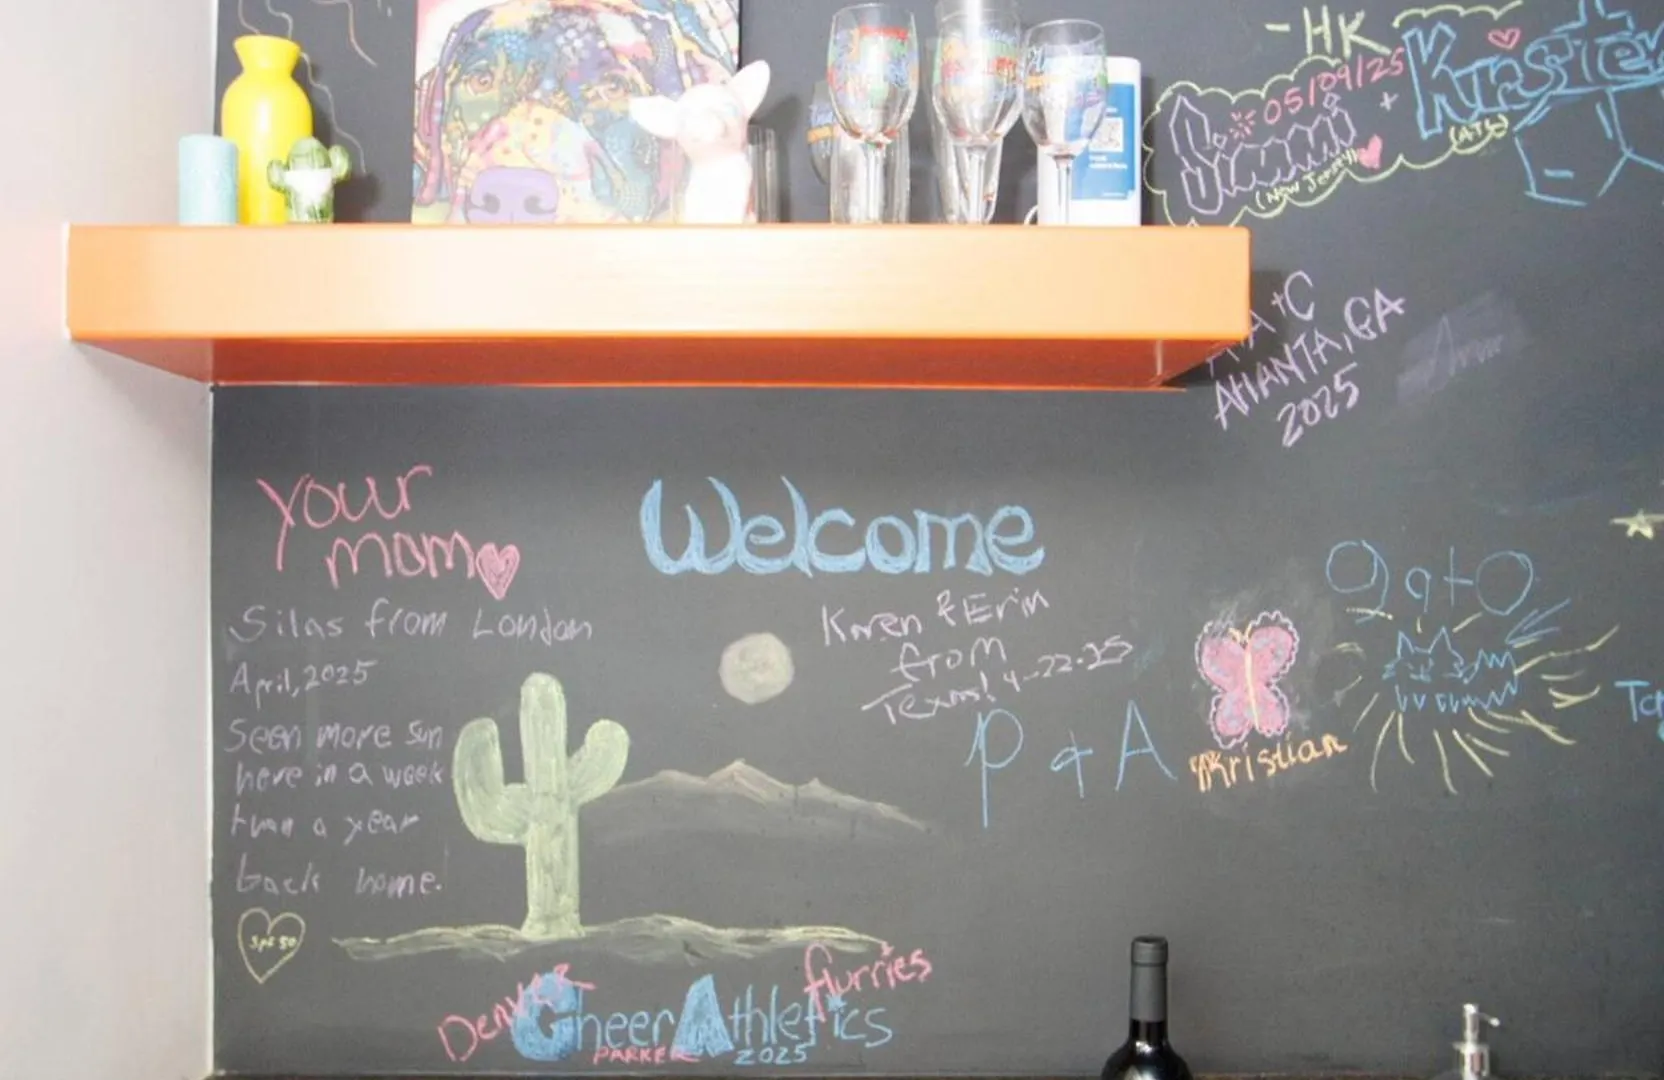 -HK
05/09/25
Simmi
(New Jersey)
+
Kirsten
(ATL)
A+C
Atlanta, GA
2025
your
mom
Silas from London
April, 2025
Seen more sun
here in a week
than a year
back home.
Spf 50
Welcome
Karen & Erin
from
Texas! 4-22-25
P & A
Kristian
Denver
flurries
Cheer Athletics
PARKER 2025